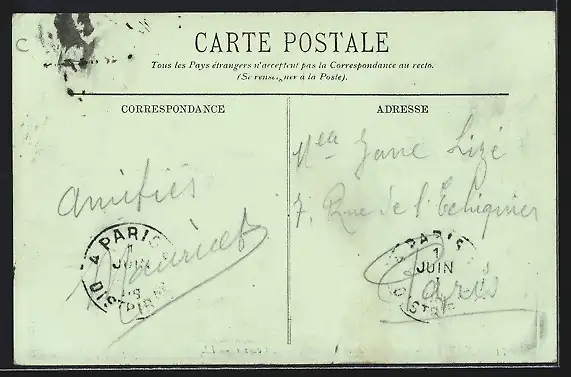 C
CARTE POSTALE
Tous les Pays étrangers n'acceptent pas la Correspondance au recto.
(Se renseigner à la Poste).
CORRESPONDANCE
ADRESSE
Jane Lizé
Amitiés
7, Rue de l'Echiquier
PARIS
1
JUIN
DISTRIB
Paris
PARIS
1
JUIN
DISTRIB